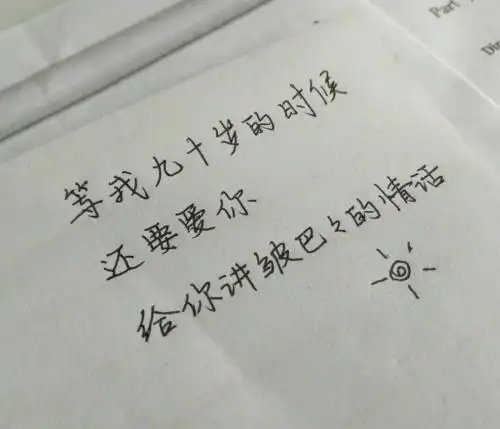 Part
Di
等我九十岁的时候
还要爱你
给你讲皱巴々的情话